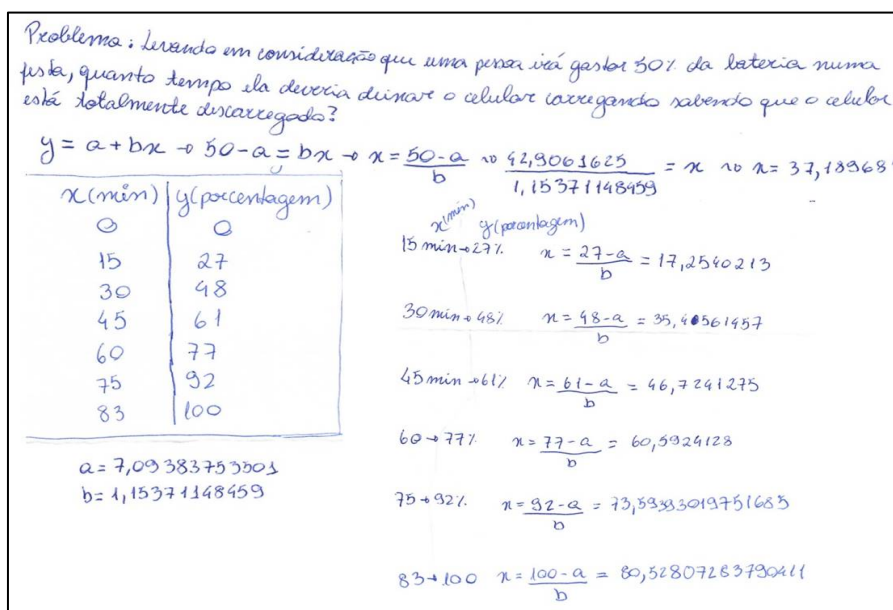 Problema: Levando em consideração que uma pessoa irá gastar 50% da bateria numa
festa, quanto tempo ela deveria deixar o celular carregando sabendo que o celular
está totalmente descarregado?
y = a + bx → 50 - a = bx → x = 50 - a / b ~ 42,9061625 / 1,15371148459 = x ~ x = 37,18968
x(min) y(porcentagem)
0 0
15 27
30 48
45 61
60 77
75 92
83 100
a = 7,09383753501
b = 1,15371148459
x(min) y(porcentagem)
15 min → 27% x = 27 - a / b = 17,2540213
30 min → 48% x = 48 - a / b = 35,45561457
45 min → 61% x = 61 - a / b = 46,7241275
60 → 77% x = 77 - a / b = 60,5924128
75 → 92% x = 92 - a / b = 73,59393019751685
83 → 100 x = 100 - a / b = 80,52807283790411